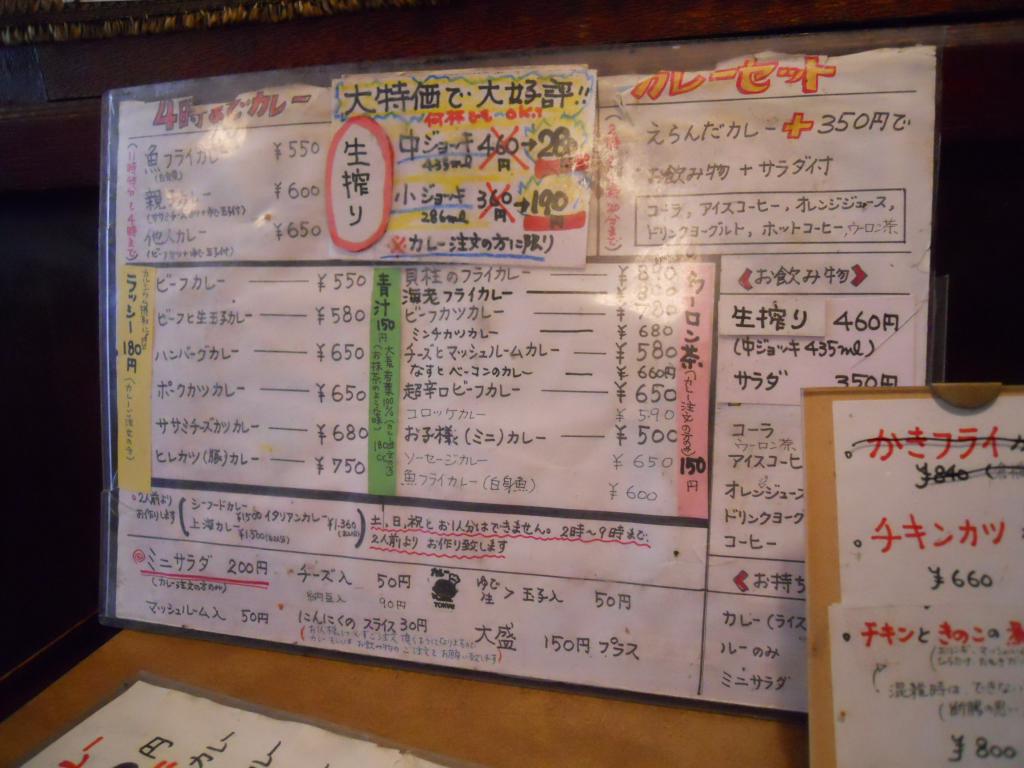 4時までカレー
(11時半から4時まで)
魚フライカレー ¥550
(白身魚)
親子カレー ¥600
他人カレー ¥650
大特価で大好評!!
何杯でもOK!
生搾り
中ジョッキ 460円→280
435ml
小ジョッキ 360円→190円
286ml
※カレー注文の方に限り
カレーセット
えらんだカレー+350円で
お飲み物+サラダ付
コーラ,アイスコーヒー,オレンジジュース,
ドリンクヨーグルト,ホットコーヒー,ウーロン茶
ラッシー180円
(カレーご注文の方)
ビーフカレー ¥550
ビーフと生玉子カレー ¥580
ハンバーグカレー ¥650
ポークカツカレー ¥650
ササミチーズカツカレー ¥680
ヒレカツ(豚)カレー ¥750
青汁150円
(お抹茶のような味)
大麦若葉100%
180cc
貝柱のフライカレー
海老フライカレー
ビーフカツカレー ¥780
ミンチカツカレー ¥680
チーズとマッシュルームカレー ¥580
なすとベーコンのカレー 660円
超辛口ビーフカレー ¥650
コロッケカレー ¥590
お子様(ミニ)カレー ¥500
ソーセージカレー ¥650
魚フライカレー(白身魚) ¥600
ウーロン茶(カレー注文の方)150円
《お飲み物》
生搾り 460円
(中ジョッキ435ml)
サラダ 350円
コーラ
ウーロン茶
アイスコーヒ
オレンジジュース
ドリンクヨーグ
コーヒー
《お持ち
カレー(ライス
ルーのみ
ミニサラダ
○2人前より
お作りします
シーフードカレー ¥1500 イタリアンカレー ¥1,360
上海カレー ¥1,500
土,日,祝とお1人分はできません。2時~9時まで。
2人前より お作り致します
◎ミニサラダ 200円
(カレー注文の方のみ)
チーズ入 50円
納豆入 90円
ゆで
生 > 玉子入 50円
マッシュルーム入 50円
にんにくのスライス30円
大盛 150円プラス
かきフライカ
¥840
・チキンカツ
¥660
・チキンときのこの
混雑時は、できない
¥800
円
カレー
カレー